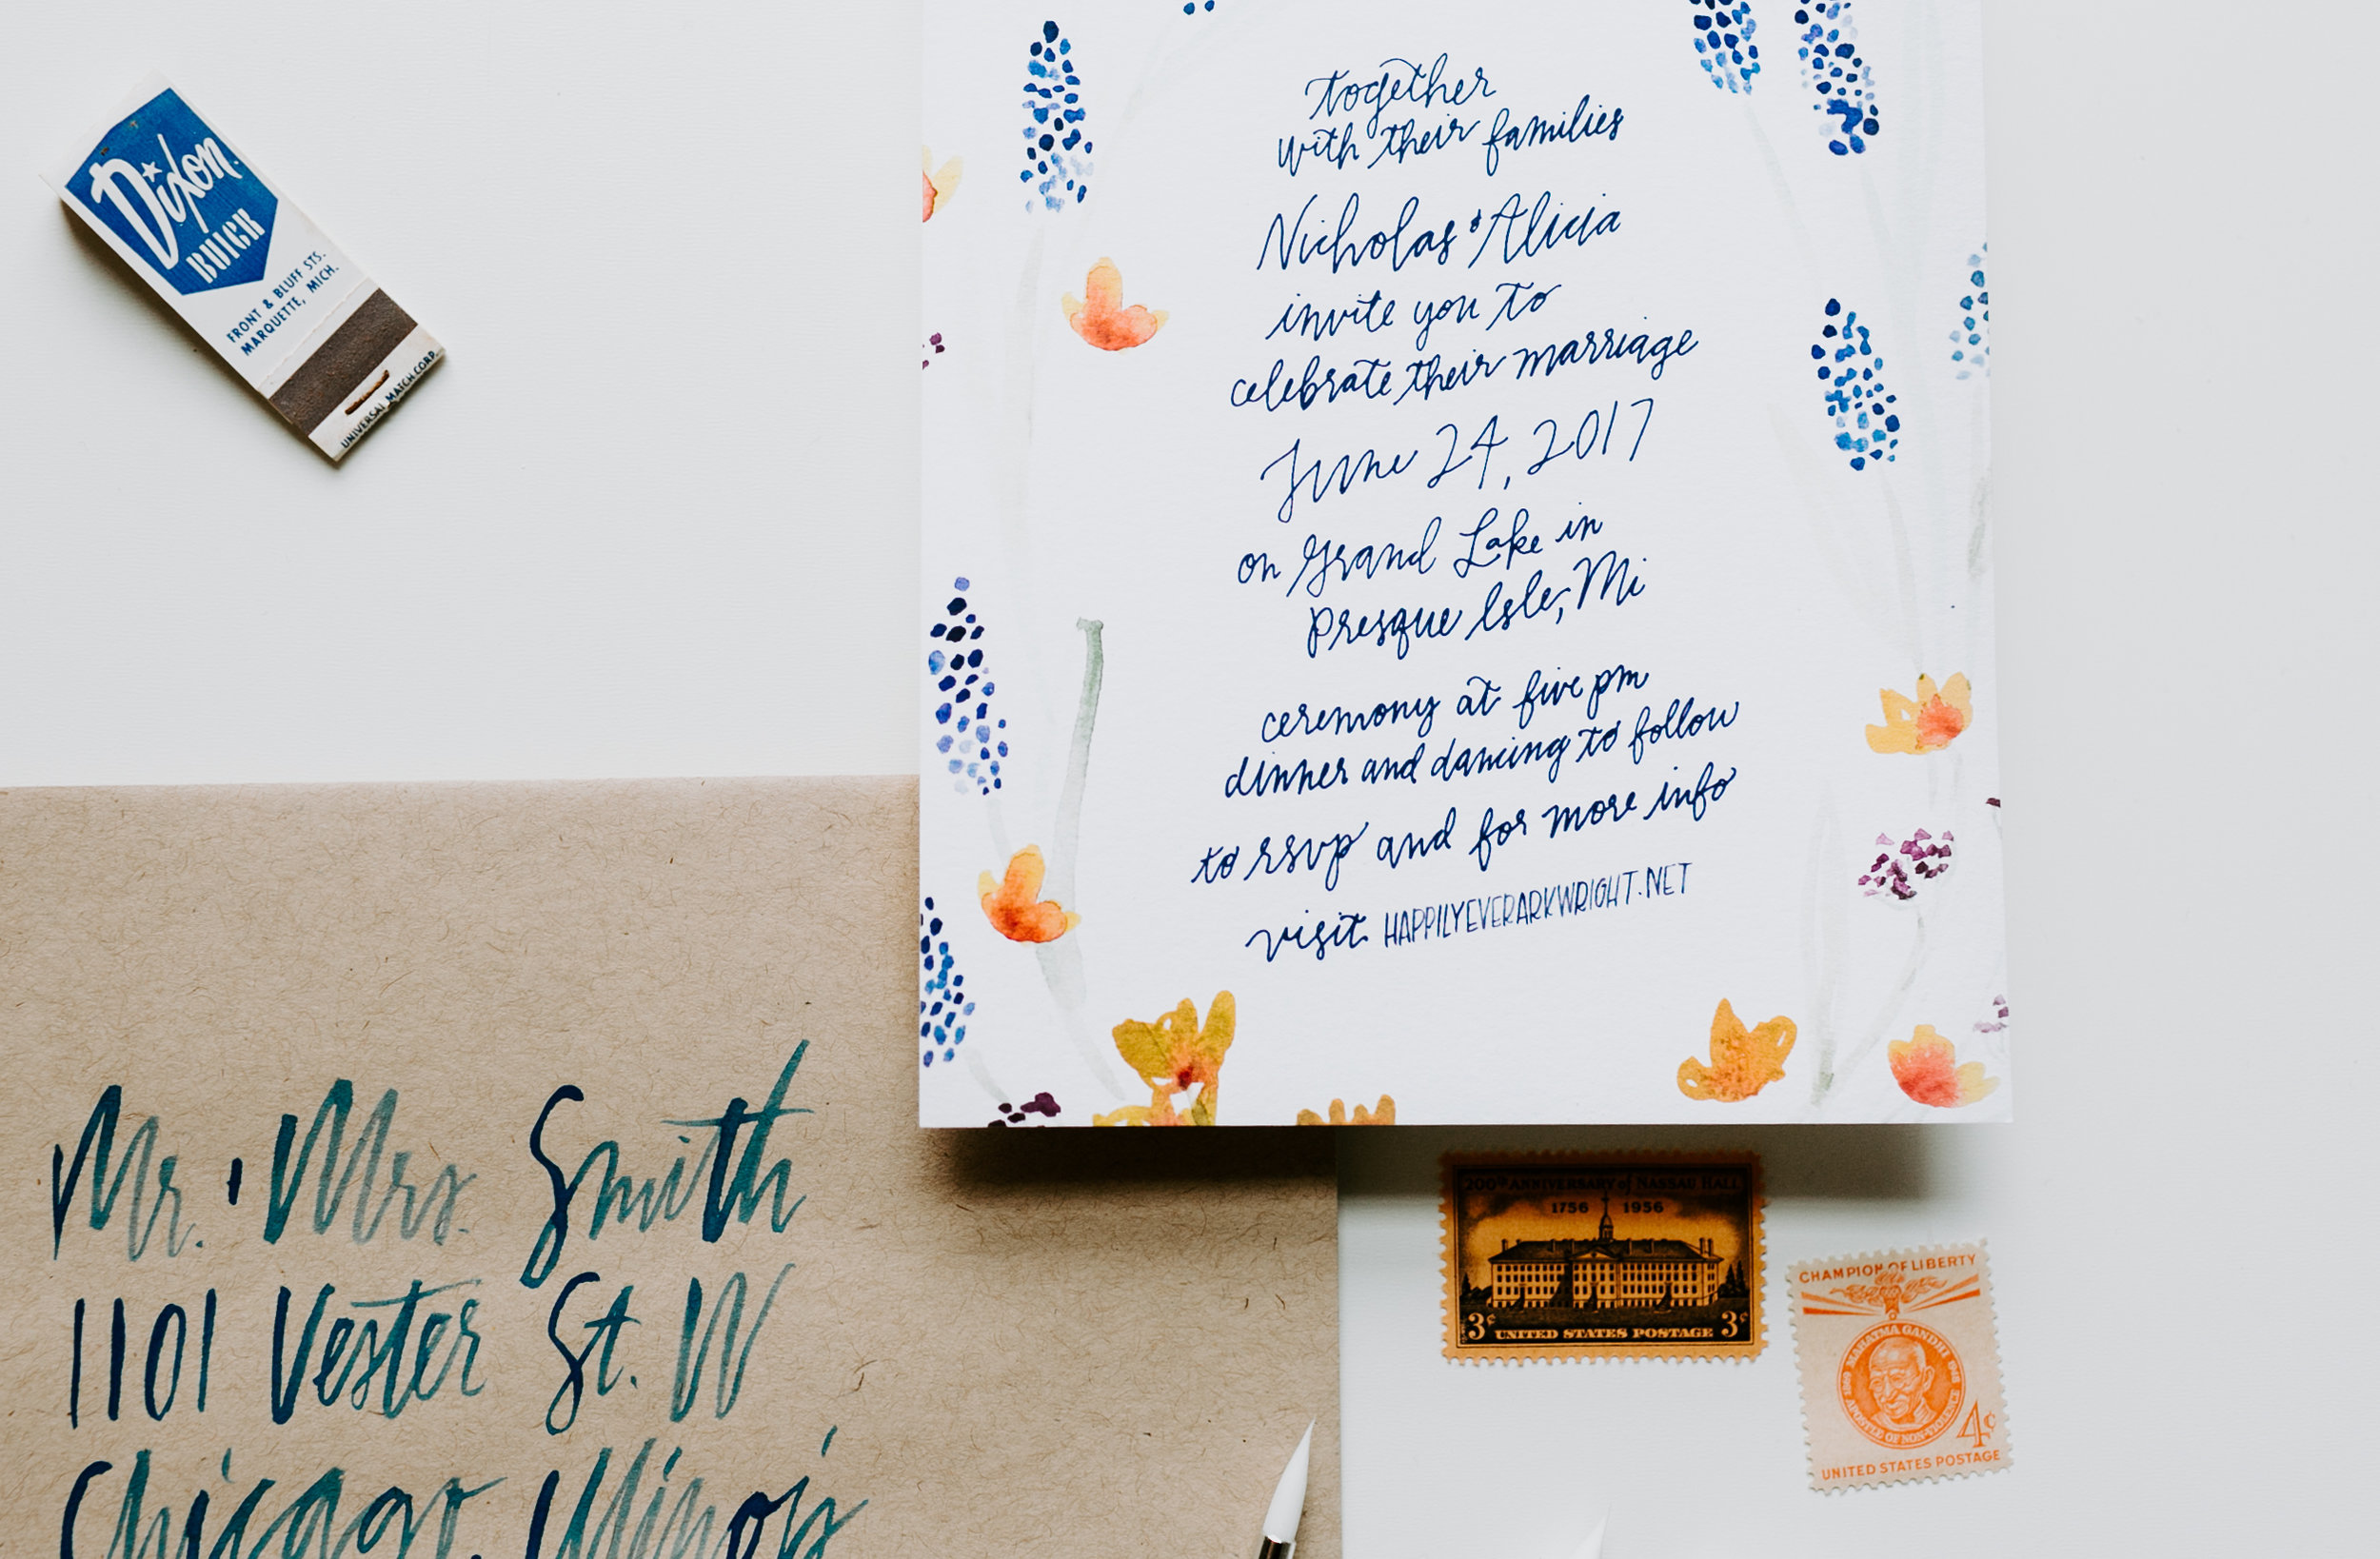 Dixon
BUICK
FRONT & BLUFF STS.
MARQUETTE, MICH.
UNIVERSAL MATCH CORP.
together
with their families
Nicholas & Alicia
invite you to
celebrate their marriage
June 24, 2017
on Grand Lake in
Presque Isle, Mi
ceremony at five pm
dinner and dancing to follow
to rsvp and for more info
visit HAPPILYEVERARKWRIGHT.NET
Mr. & Mrs. Smith
1101 Vester St. W
Chicago, Illinois
200TH ANNIVERSARY of NASSAU HALL
1756 1956
3¢ UNITED STATES POSTAGE 3¢
CHAMPION OF LIBERTY
1869 MAHATMA GANDHI 1948
APOSTLE OF NON-VIOLENCE
4¢
UNITED STATES POSTAGE